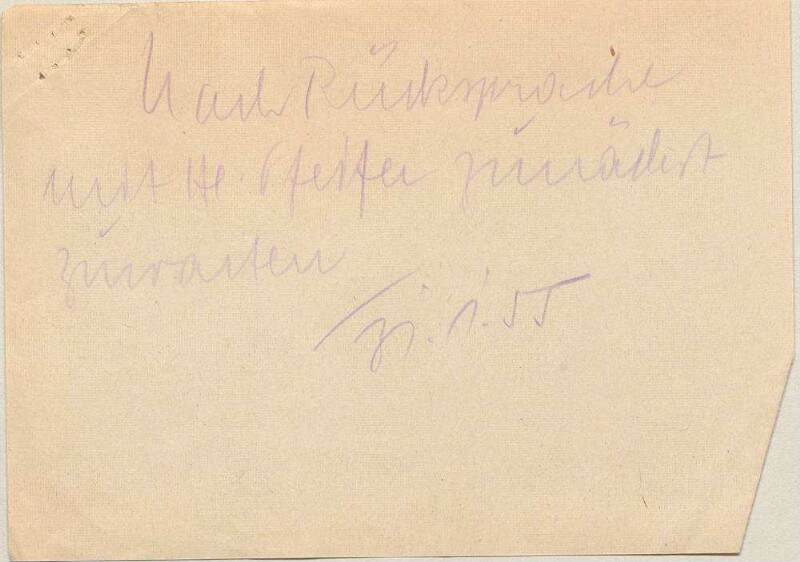 Nach Rücksprache
mit He. Pfeifer zunächst
zuwarten
1.55